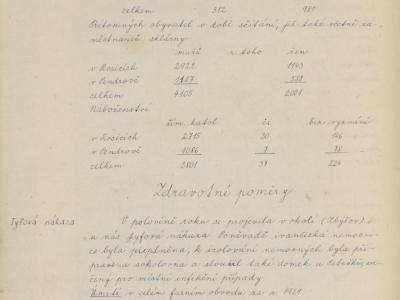 celkem 312 981
Přítomných obyvatel v době sčítání, jich také včetně za-
městnanců sklárny
mužů z toho žen
v Kosicích 2922 1143
v Pendrově 1187 858
celkem 4105 2001
Náboženství
řím. katol. čs bez vyznání
v Kosicích 2715 30 146
v Pendrově 1086 7 78
celkem 3801 37 224
Zdravotní poměry
Tyfová nákaza V polovině roku se projevila v okolí (Zbýšov) i
u nás tyfová nákaza. Poněvadž ivančická nemocni-
ce byla přeplněna, k izolování nemocných byla při-
pravena sokolovna a sloužil také domek u
čený pro místní infekční případy.
Úmrtí v celém farním obvodu za r. 1921